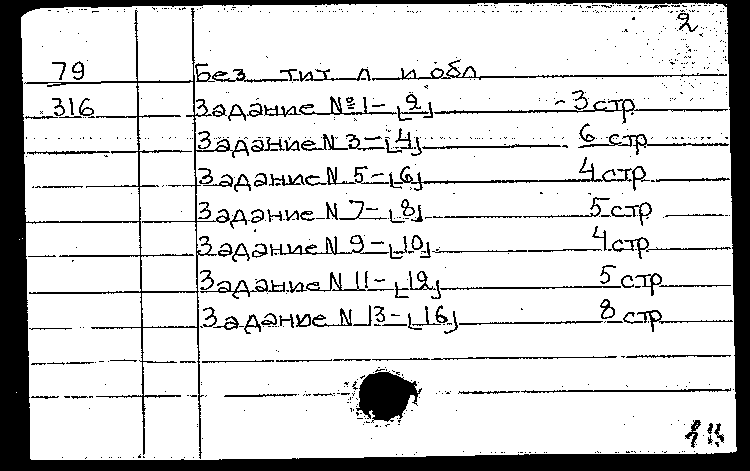 2
79 Без тит л и обл
316 Задание №1-[2] - 3 стр
Задание N 3-[4] 6 стр
Задание N 5-[6] 4 стр
Задание N 7-[8] 5 стр
Задание N 9-[10] 4 стр
Задание N 11-[12] 5 стр
Задание N 13-[16] 8 стр